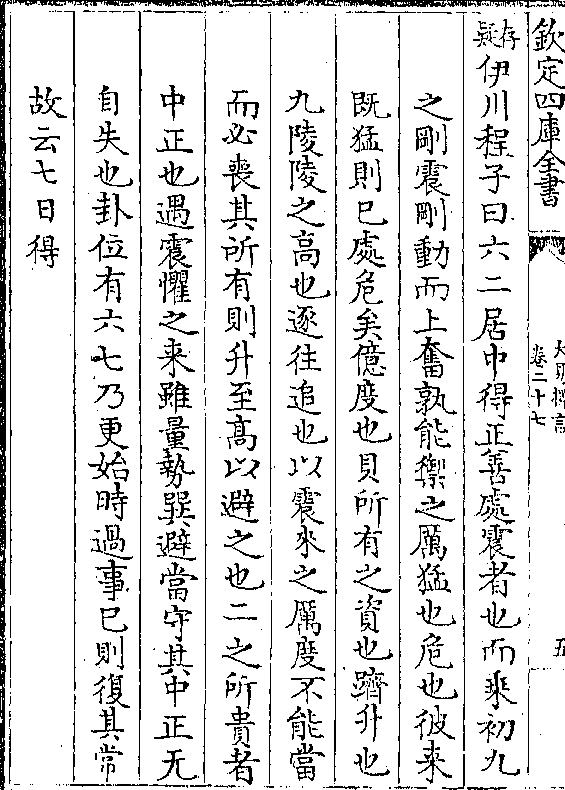 欽定四庫全書
卷二十七
五
存疑伊川程子曰六二居中得正善處震者也而乘初九
之剛震剛動而上奮孰能禦之厲猛也危也彼来
既猛則已處危矣億度也貝所有之資也躋升也
九陵陵之高也逐往追也以震来之厲度不能當
而必喪其所有則升至高以避之也二之所貴者
中正也遇震懼之来雖量勢巽避當守其中正无
自失也卦位有六七乃更始時過事已則復其常
故云七日得